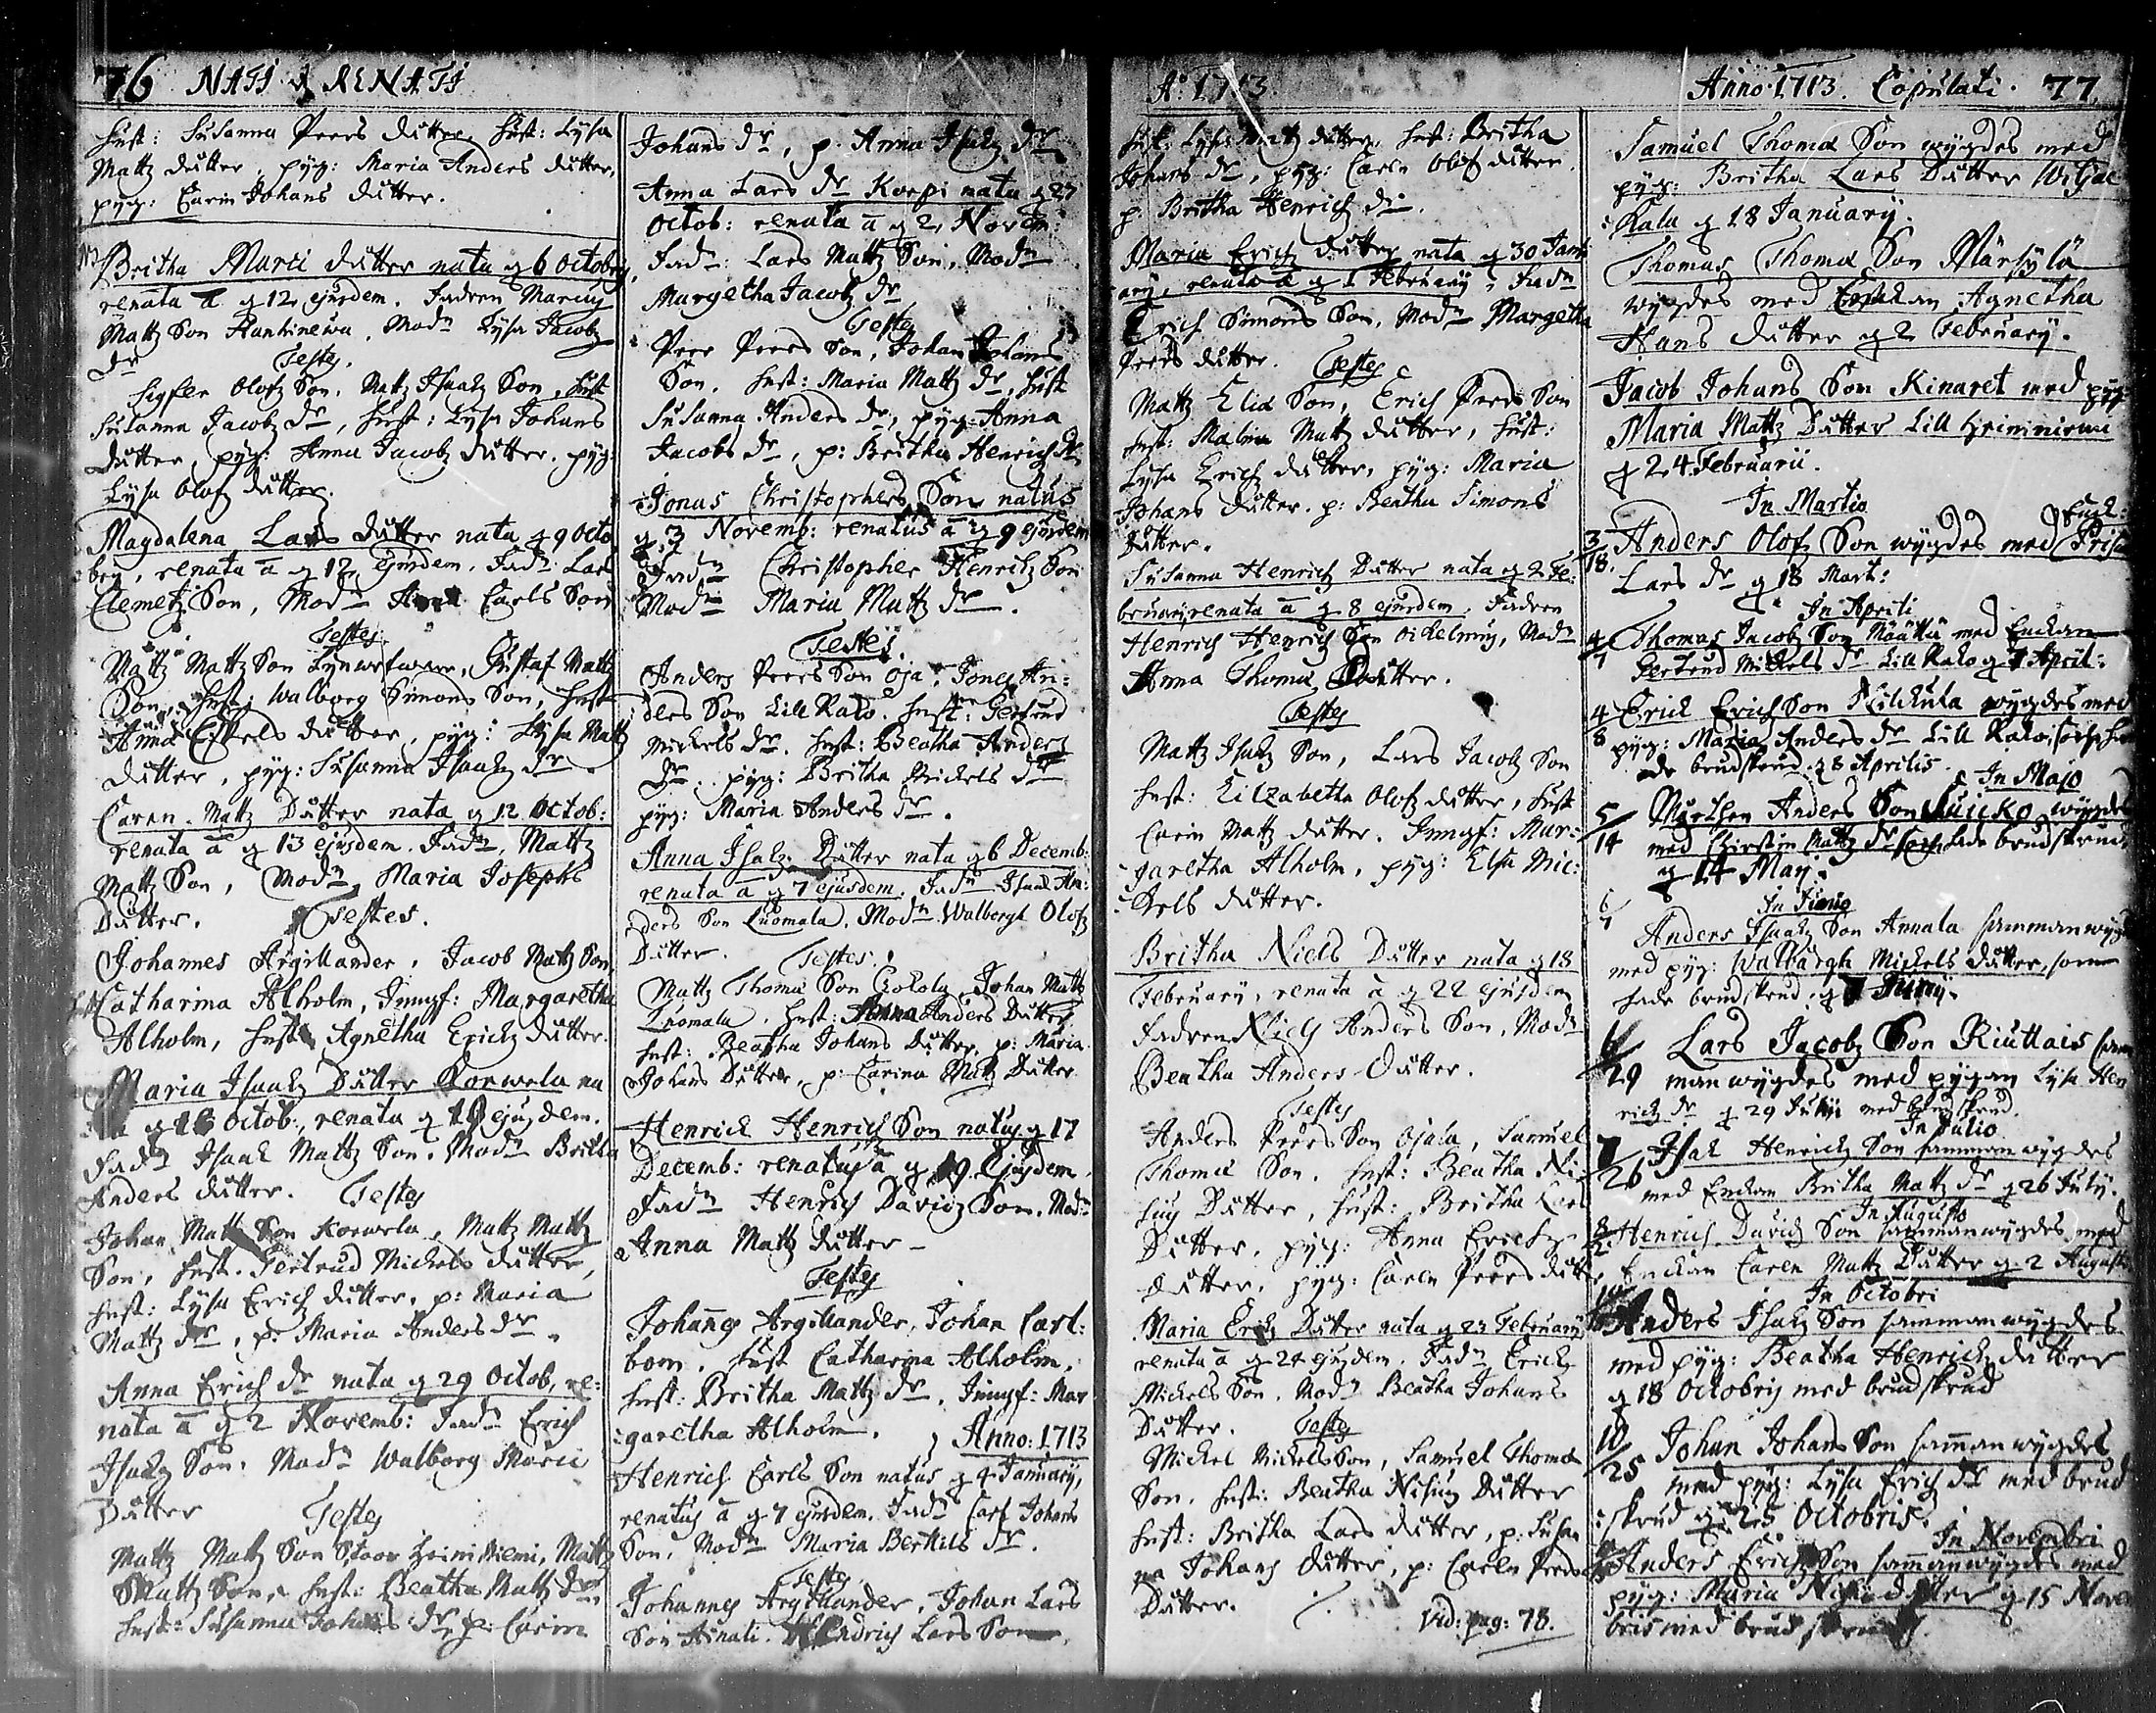 76 NATI & RENATI
Hust: Susanna Peers dutter, Hust: Lysa
Mattz dutter, pyg: Maria Anders dutter,
pyg: Carin Johans dutter.
Britha Marci dutter nata q 6 Octobrij,
renata a q 12 ejusdem. Fadren Marcus
Mattz Son Hankinewa, Modn Lysa Jacobz
dr Testes.
Sigfer Olofz Son, Mattz Isaakz Son, Hust
Susanna Jacobz dr, Hust: Lysa Johans
dutter, pyg: Anna Jacobz dutter, pyg:
Lysa Olofz dutter.
Magdalena Lars dutter nata q 9 Octo
bris, renata a q 12 ejusdem. Fadn: Lars
Clemetz Son, Modn Carls Son
Testes
Mattz Mattz Son, Gustaf Mattz
Son, Hust: Walborg Simons Son, Hust
Anna Eskels dutter, pyg: Lysa Mattz
dutter, pyg: Susanna Isaakz dr.
Caren Mattz Dutter nata q 12 Octob:
renata a q 13 ejusdem. Fadn, Mattz
Mattz Son, Modn, Maria Josephs
Dutter. Testes.
Johannes Argillander, Jacob Mattz Son
Hust Catharina Alholm, Jungf: Margaretha
Alholm, Hust Agnetha Erichz dutter.
Maria Isaakz Dutter Korwela na
ta q 16 Octob:, renata q 19 ejusdem.
Fadn Isaak Mattz Son. Modn Britha
Anders dutter. Testes
Johan Mattz Son Korwela, Mattz Mattz
Son, Hust. Gertrud Michels dutter,
Hust: Lysa Erich dutter, p: Maria
Mattz dr, p: Maria Anders dr.
Anna Erich dr nata q 29 Octob, re:
nata a q 2 Novemb: Fadn Erich
Isaakz Son. Modn Walborg Marci
Dutter Testes
Mattz Mattz Son Stoor Heininiemi, Mattz
Mattz Son, Hust: Beatha Mattz dr,
Hust: Susanna Johans dr, p: Carin
Johans dr, p. Anna Isakz dr
Anna Lars dr Korpi nata q 27
Octob: renata a q 2 Novem:
Fadn: Lars Mattz Son, Modn
Margetha Jacobz dr
Testes
Peer Peers Son, Johan Johans
Son. Hust: Maria Mattz dr, Hust
Susanna Anders dr, pyg: Anna
Jacobs dr, p: Britha Henrich dr
Jonas Christophers Son natus
q 3 Novemb: renatus a q 9 ejusdem
Fadn Christopher Henrichz Son
Modn Maria Mattz dr.
Testes.
Anders Peers Son Oja, Jones An:
ders Son Lill Kalo. Hust: Gertrud
Michels dr. Hust: Beatha Anders
Dr. pyg: Britha Michels dr
pyg: Maria Anders dr.
Anna Isakz Dutter nata q 6 Decemb:
renata a q 7 ejusdem. Fadn Isaak An:
ders Son Luomala. Modn Walbergh Olofz
Dutter. Testes.
Mattz Thomæ Son Johan Mattz
Luomala. Hust: Anna Anders Dutter
Hust: Beatha Johans Dutter, p: Maria
Johans Dutter, p: Carina Mattz Dutter
Henrich Henrich Son natus q 17
Decemb: renatus a q 19 Ejusdem.
Fadn Henrich Davidz Son. Modn
Anna Mattz dutter
Testes
Johannes Argillander, Johan Carl:
bom. Hust Catharina Alholm,
Hust: Britha Mattz dr, Jungf: Mar
garetha Alholm. Anno: 1713
Henrich Carls Son natus q 4 January,
renatus a q 7 ejusdem. Fadn Carl Johans
Son. Modn Maria Berthils dr.
Testes
Johannes Argillander, Johan Lars
Son Ainali. Hendrich Lars Son.
Ao: 1713.
Hust: Lysa Mattz dutter, Hust: Britha
Johans dr, pyg: Carln Olof dutter,
p: Britha Henrich dr.
Maria Erich Dutter nata q 30 Janu
ary, renata a q 1 February, Fadn
Erich Simons Son, Modn Margetha
Peers dutter. Testes
Mattz Eliæ Son, Erich Peers Son
Hust: Malin Mattz dutter, Hust:
Lysa Erich dutter, pyg: Maria
Johans dutter. p: Beatha Simons
Dutter.
Susanna Henrich Dutter nata q 2 Fe:
bruary, renata a q 8 ejusdem. Fadren
Henrich Henrich Son, Modn
Anna Thomæ Dutter.
Testes
Mattz Isakz Son, Lars Jacobz Son
Hust: Elizabetha Olofz dutter, Hust
Carin Mattz dutter. Jungf: Mar:
garetha Alholm, pyg: Elsa Mic:
hels dutter.
Britha Niels Dutter nata q 18
February, renata a q 22 ejusdem
Fadren Niels Anders Son, Modn
Beatha Anders Dutter.
Testes
Anders Peers Son Ojala, Samuel
Thomæ Son, Hust: Beatha Ni-
lus Dutter, Hust: Britha Lars
Dutter, pyg: Anna Erichz
dutter, pyg: Carln Peers dutter
Maria Erichz Dutter nata q 23 February
renata a q 24 ejusdem. Fadn Erich
Michels Son. Modn Beatha Johans
Dutter. Testes
Michel Michels Son, Samuel Thomæ
Son. Hust: Beatha Nilus Dutter
Hust: Britha Lars dutter, p: Susan
na Johans Dutter, p: Carln Peers
Dutter.
Vid: pag: 78.
Anno 1713. Copulati. 77
Samuel Thomæ Son wygdes med
pyg: Britha Lars Dutter
Kala q 18 January.
Thomas Thomæ Son Märsylä
wygdes med Enkan Agnetha
Hans dutter q 2 February.
Jacob Johans Son Kinaret med pyg:
Maria Mattz Dutter Lill Heininiemi
q 24 Februarii.
In Martio
3/18. Anders Olofz Son wygdes med Enck: Prisa
Lars dr q 18 Mart:
In Aprili
4/7 Thomas Jacobz Son Määttä med Enckan
Gertrud Michels dr Lill Kalo q 7 April:
4/8 Erich Erich Son wygdes med
pyg: Maria Anders dr Lill Kalo, som ha
de brudskrud q 8 Aprilis.
In Majo
5/14 Morthen Anders Son Luicko wygdes
med Chirstin Mattz dr som hade brudskrud,
q 14 Maij.
In Junio
6/7 Anders Isaakz Son Annala sammanwyg
med pyg: Walbargh Michels dutter, som
hade brudskrud q 7 Junij.
6/29 Lars Jacobz Son Kiuttais sam
man wygdes med pygan Lysa Hen
rich dr q 29 Junii med brudskrud.
In Julio
7/26 Isak Henrich Son sammanwygdes
med Enckan Britha Mattz dr q 26 July.
In Augusto
8/2 Henrich David Son sammanwygdes med
Enckan Caren Mattz Dutter q 2 Augusti
In Octobri
Anders Isakz Son sammanwygdes
med pyg: Beatha Henrich dutter
q 18 Octobrij med brudskrud
10/25 Johan Johans Son samanwygdes
med pyg: Lysa Erich dr med brud
skrud q 25 Octobris.
In Novembri
Anders Erich Son samanwygdes med
pyg: Maria dutter q 15 Novem
bris med brudskrud.